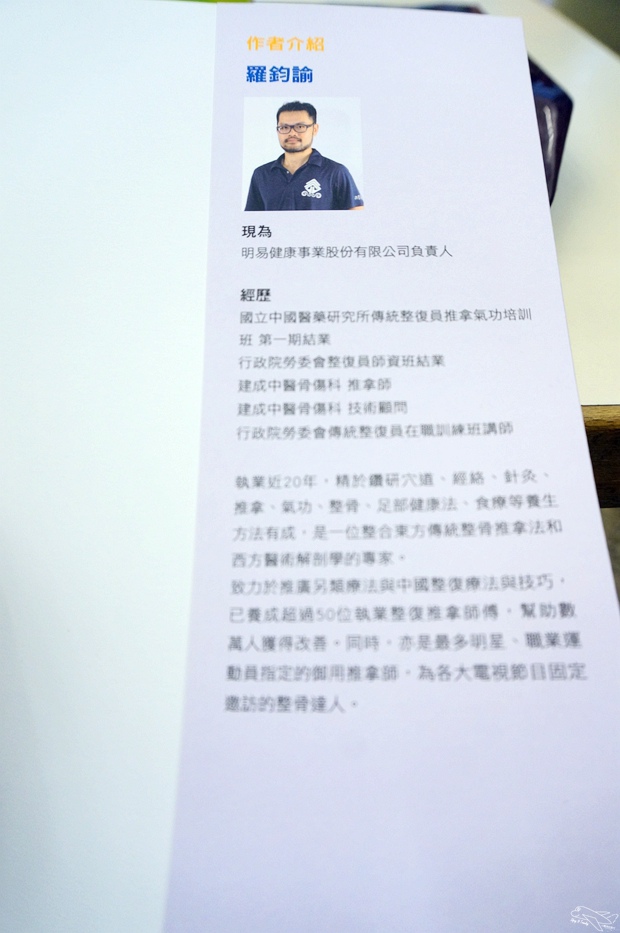 作者介紹
羅鈞諭
現為
明易健康事業股份有限公司負責人
經歷
國立中國醫藥研究所傳統整復員推拿氣功培訓
班 第一期結業
行政院勞委會整復員師資班結業
建成中醫骨傷科 推拿師
建成中醫骨傷科 技術顧問
行政院勞委會傳統整復員在職訓練班講師
執業近20年，精於鑽研穴道、經絡、針灸、
推拿、氣功、整骨、足部健康法、食療等養生
方法有成，是一位整合東方傳統整骨推拿法和
西方醫術解剖學的專家。
致力於推廣另類療法與中國整復療法與技巧，
已養成超過50位執業整復推拿師傅，幫助數
萬人獲得改善。同時，亦是最多明星、職業運
動員指定的御用推拿師，為各大電視節目固定
邀訪的整骨達人。